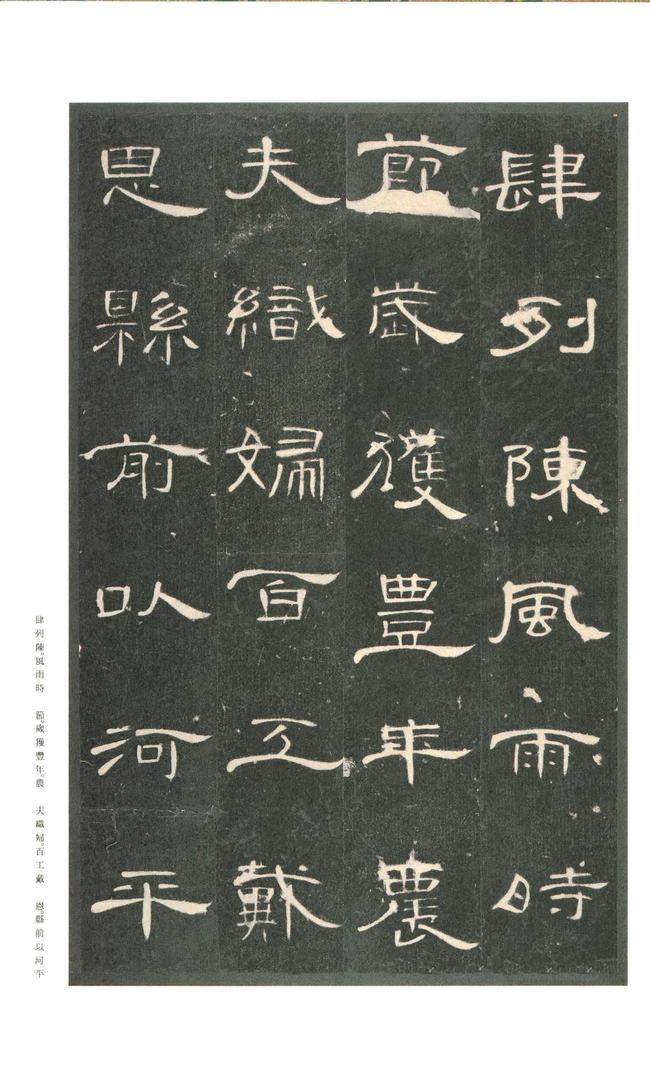 肆列陳風雨時
節歲獲豐年農
夫織婦百工戴
恩縣前以河平
肆列陳。風雨時　節。歲獲豐年。農　夫織婦。百工戴　恩。縣前以河平